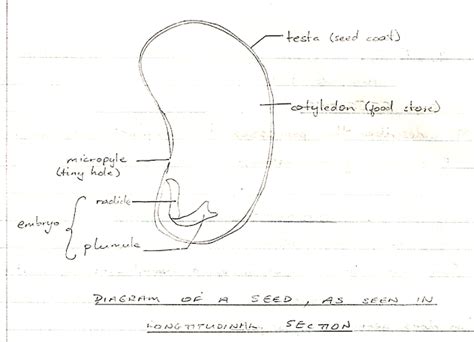 testa (seed coat)
cotyledon (food store)
micropyle
(tiny hole)
radicle
embryo
plumule
DIAGRAM OF A SEED, AS SEEN IN
LONGTITUDINAL SECTION